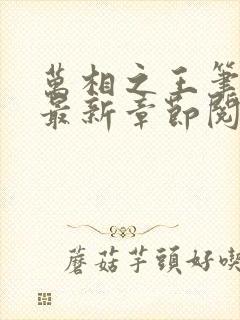 萬相之王筆
最新章節閱
蘑菇芋頭好喫